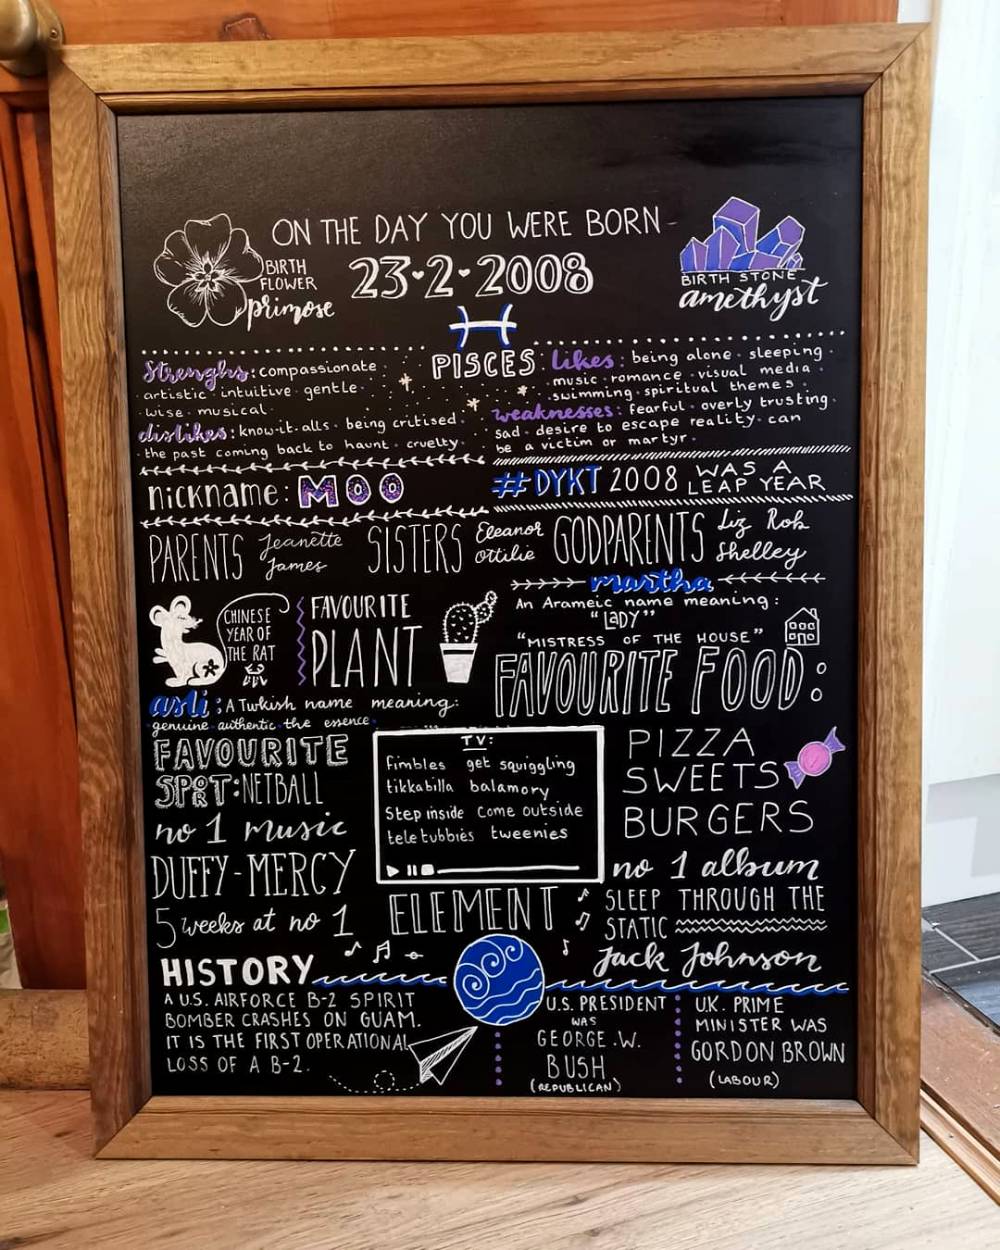 ON THE DAY YOU WERE BORN
BIRTH
FLOWER
primose
23·2·2008
BIRTH STONE
amethyst
PISCES
Strenghs: compassionate ·
artistic · intuitive · gentle ·
· wise · musical ·
dislikes: know-it-alls · being critised ·
· the past coming back to haunt · cruelty ·
likes: being alone · sleeping ·
· music · romance · visual media ·
· swimming · spiritual themes ·
weaknesses: fearful · overly trusting ·
sad · desire to escape reality · can
be a victim or martyr ·
nickname: MOO
#DYKT 2008 WAS A
LEAP YEAR
PARENTS Jeanette
James
SISTERS Eleanor
Ottilie
GODPARENTS Liz Rob
Shelley
CHINESE
YEAR OF
THE RAT
FAVOURITE
PLANT
martha
An Arameic name meaning:
"LADY"
"MISTRESS OF THE HOUSE"
asli: A Turkish name meaning:
genuine · authentic · the essence ·
FAVOURITE FOOD:
PIZZA
SWEETS
BURGERS
FAVOURITE
SPORT: NETBALL
TV:
fimbles get squiggling
tikkabilla balamory
Step inside come outside
teletubbies tweenies
no 1 music
DUFFY-MERCY
5 weeks at no 1
ELEMENT
no 1 album
SLEEP THROUGH THE
STATIC
Jack Johnson
HISTORY
A U.S. AIRFORCE B-2 SPIRIT
BOMBER CRASHES ON GUAM.
IT IS THE FIRST OPERATIONAL
LOSS OF A B-2.
U.S. PRESIDENT
WAS
GEORGE .W.
BUSH
(REPUBLICAN)
U.K. PRIME
MINISTER WAS
GORDON BROWN
(LABOUR)